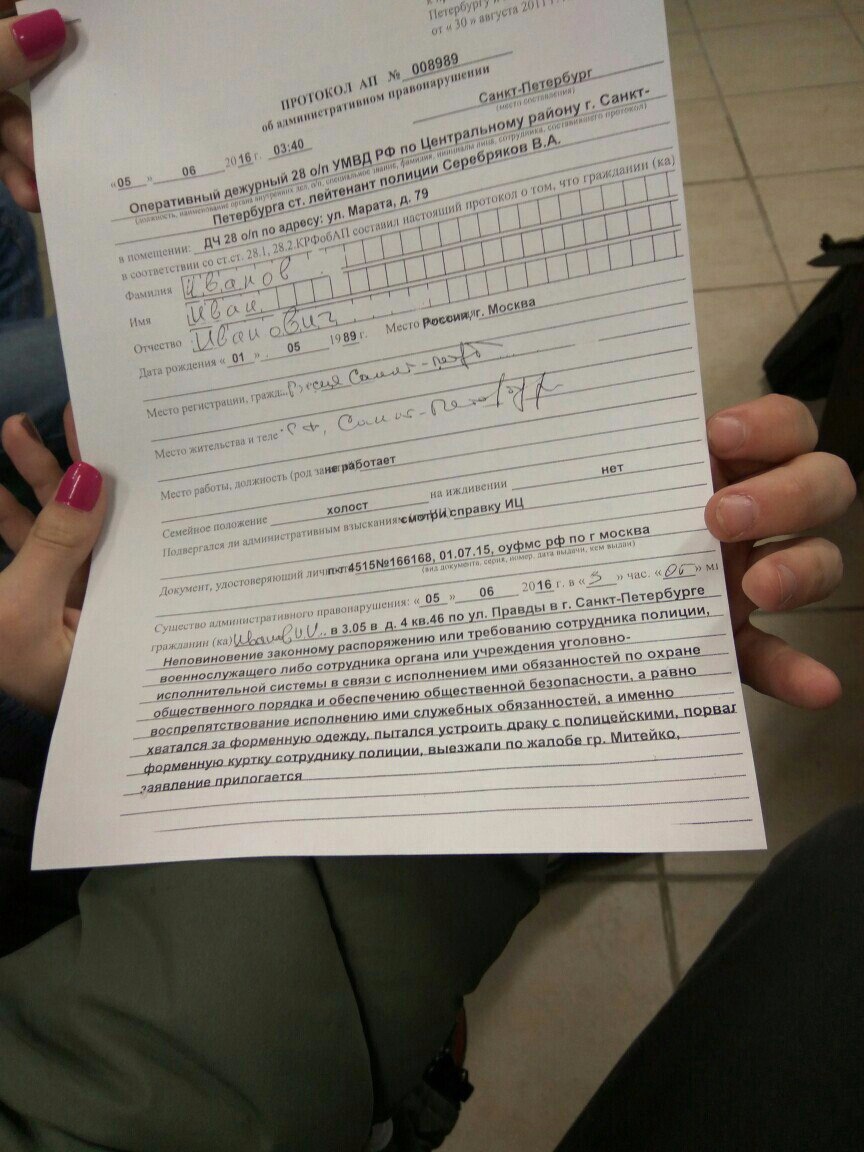 Петербургу и
от « 30 » августа 2011 г.
ПРОТОКОЛ АП № 008989
об административном правонарушении
Санкт-Петербург
(место составления)
« 05 » 06 2016 г. 03:40
Оперативный дежурный 28 о/п УМВД РФ по Центральному району г. Санкт-
(должность, наименование органа внутренних дел, о/п, специальное звание, фамилия, инициалы лица, сотрудника, составившего протокол)
Петербурга ст. лейтенант полиции Серебряков В.А.
в помещении: ДЧ 28 о/п по адресу: ул. Марата, д. 79
в соответствии со ст.ст. 28.1, 28.2.КРФобАП составил настоящий протокол о том, что гражданин (ка)
Фамилия Иванов
Имя Иван
Отчество Иванович
Дата рождения « 01 » . 05 1989 г. Место Россия, г. Москва
Место регистрации, гражд. Россия Санкт-Петерб
Место жительства и теле РФ, Санкт-Петербург
Место работы, должность (род за не работает
Семейное положение холост на иждивении нет
Подвергался ли административным взысканиям смотри справку ИЦ
Документ, удостоверяющий личность п-т 4515№166168, 01.07.15, оуфмс рф по г москва
(вид документа, серия, номер, дата выдачи, кем выдан)
Существо административного правонарушения: « 05 » 06 2016 г. в « 3 » час. « 05 » ми
гражданин (ка) Иванов И.И. в 3.05 в д. 4 кв.46 по ул. Правды в г. Санкт-Петербурге
Неповиновение законному распоряжению или требованию сотрудника полиции,
военнослужащего либо сотрудника органа или учреждения уголовно-
исполнительной системы в связи с исполнением ими обязанностей по охране
общественного порядка и обеспечению общественной безопасности, а равно
воспрепятствование исполнению ими служебных обязанностей, а именно
хватался за форменную одежду, пытался устроить драку с полицейскими, порвал
форменную куртку сотруднику полиции, выезжали по жалобе гр. Митейко,
заявление прилогается